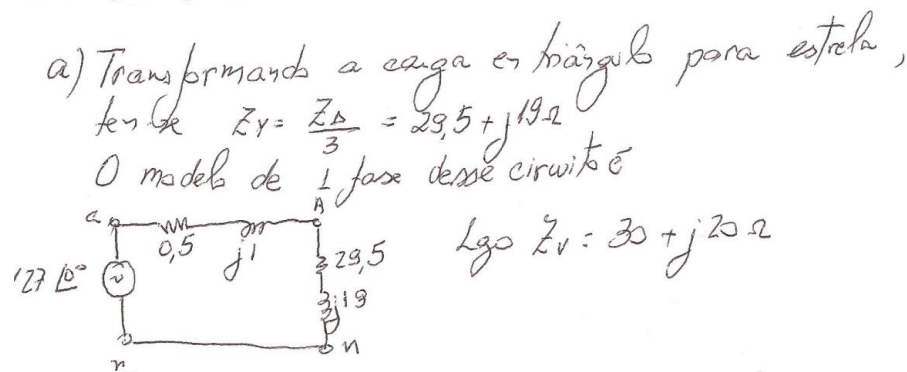 a) Transformando a carga en triângulo para estrela,
tem-se ZY = ZΔ/3 = 29,5 + j19Ω
O modelo de 1 fase desse circuito é
a A
0,5 j1 29,5 Logo ZY = 30 + j20 Ω
127 ∠0° j19
n n